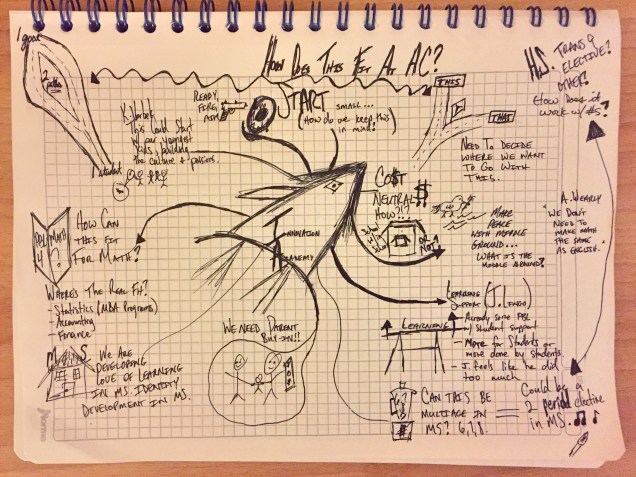 1 goal
2 paths
1 student
How Does This Fit At AC?
H.S.
Trans 9
Elective?
Other?
How does it
work w/ #s?
Ready,
Fire,
Aim
START
small...
(How do we keep this
in mind?
THIS
THAT
Need To Decide
Where We Want
To Go With
This.
K. Corbett
This Could Start
w/ our youngest
kids building
the culture & patterns.
Cost
Neutral $
How?!?
Make
Peace
With Middle
Ground...
What is the
Middle Ground?
or
Not?
A. Wearly
"We Don't
Need To
Make Math
The Same
As English."
Innovation
Academy
MATH
?
How Can
This Fit
For Math?
Where's The Real Fit?
- Statistics (MBA Programs)
- Accounting
- Finance
Learning
Support (J. Lengo)
- Already some PBL
w/ student support
- More for Students or
more done by students.
- J. feels like he did
too much
Learning
We Need Parent
Buy-In!!
MS
We Are
Developing
Love of Learning
In M.S. Identity
Development in MS.
Can This Be
Multiage In
MS? 6, 7, 8.
=
Could be a
2 period elective
in MS.